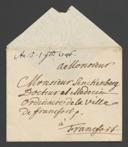 a Monsieur
Monsieur Senckenberg
Docteur et Medecin
Ordinaire de la Ville
de Francfort
à
Francfort